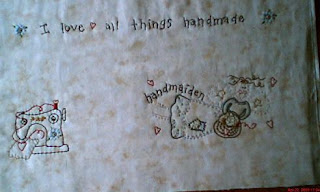 I love all things handmade
handmaiden